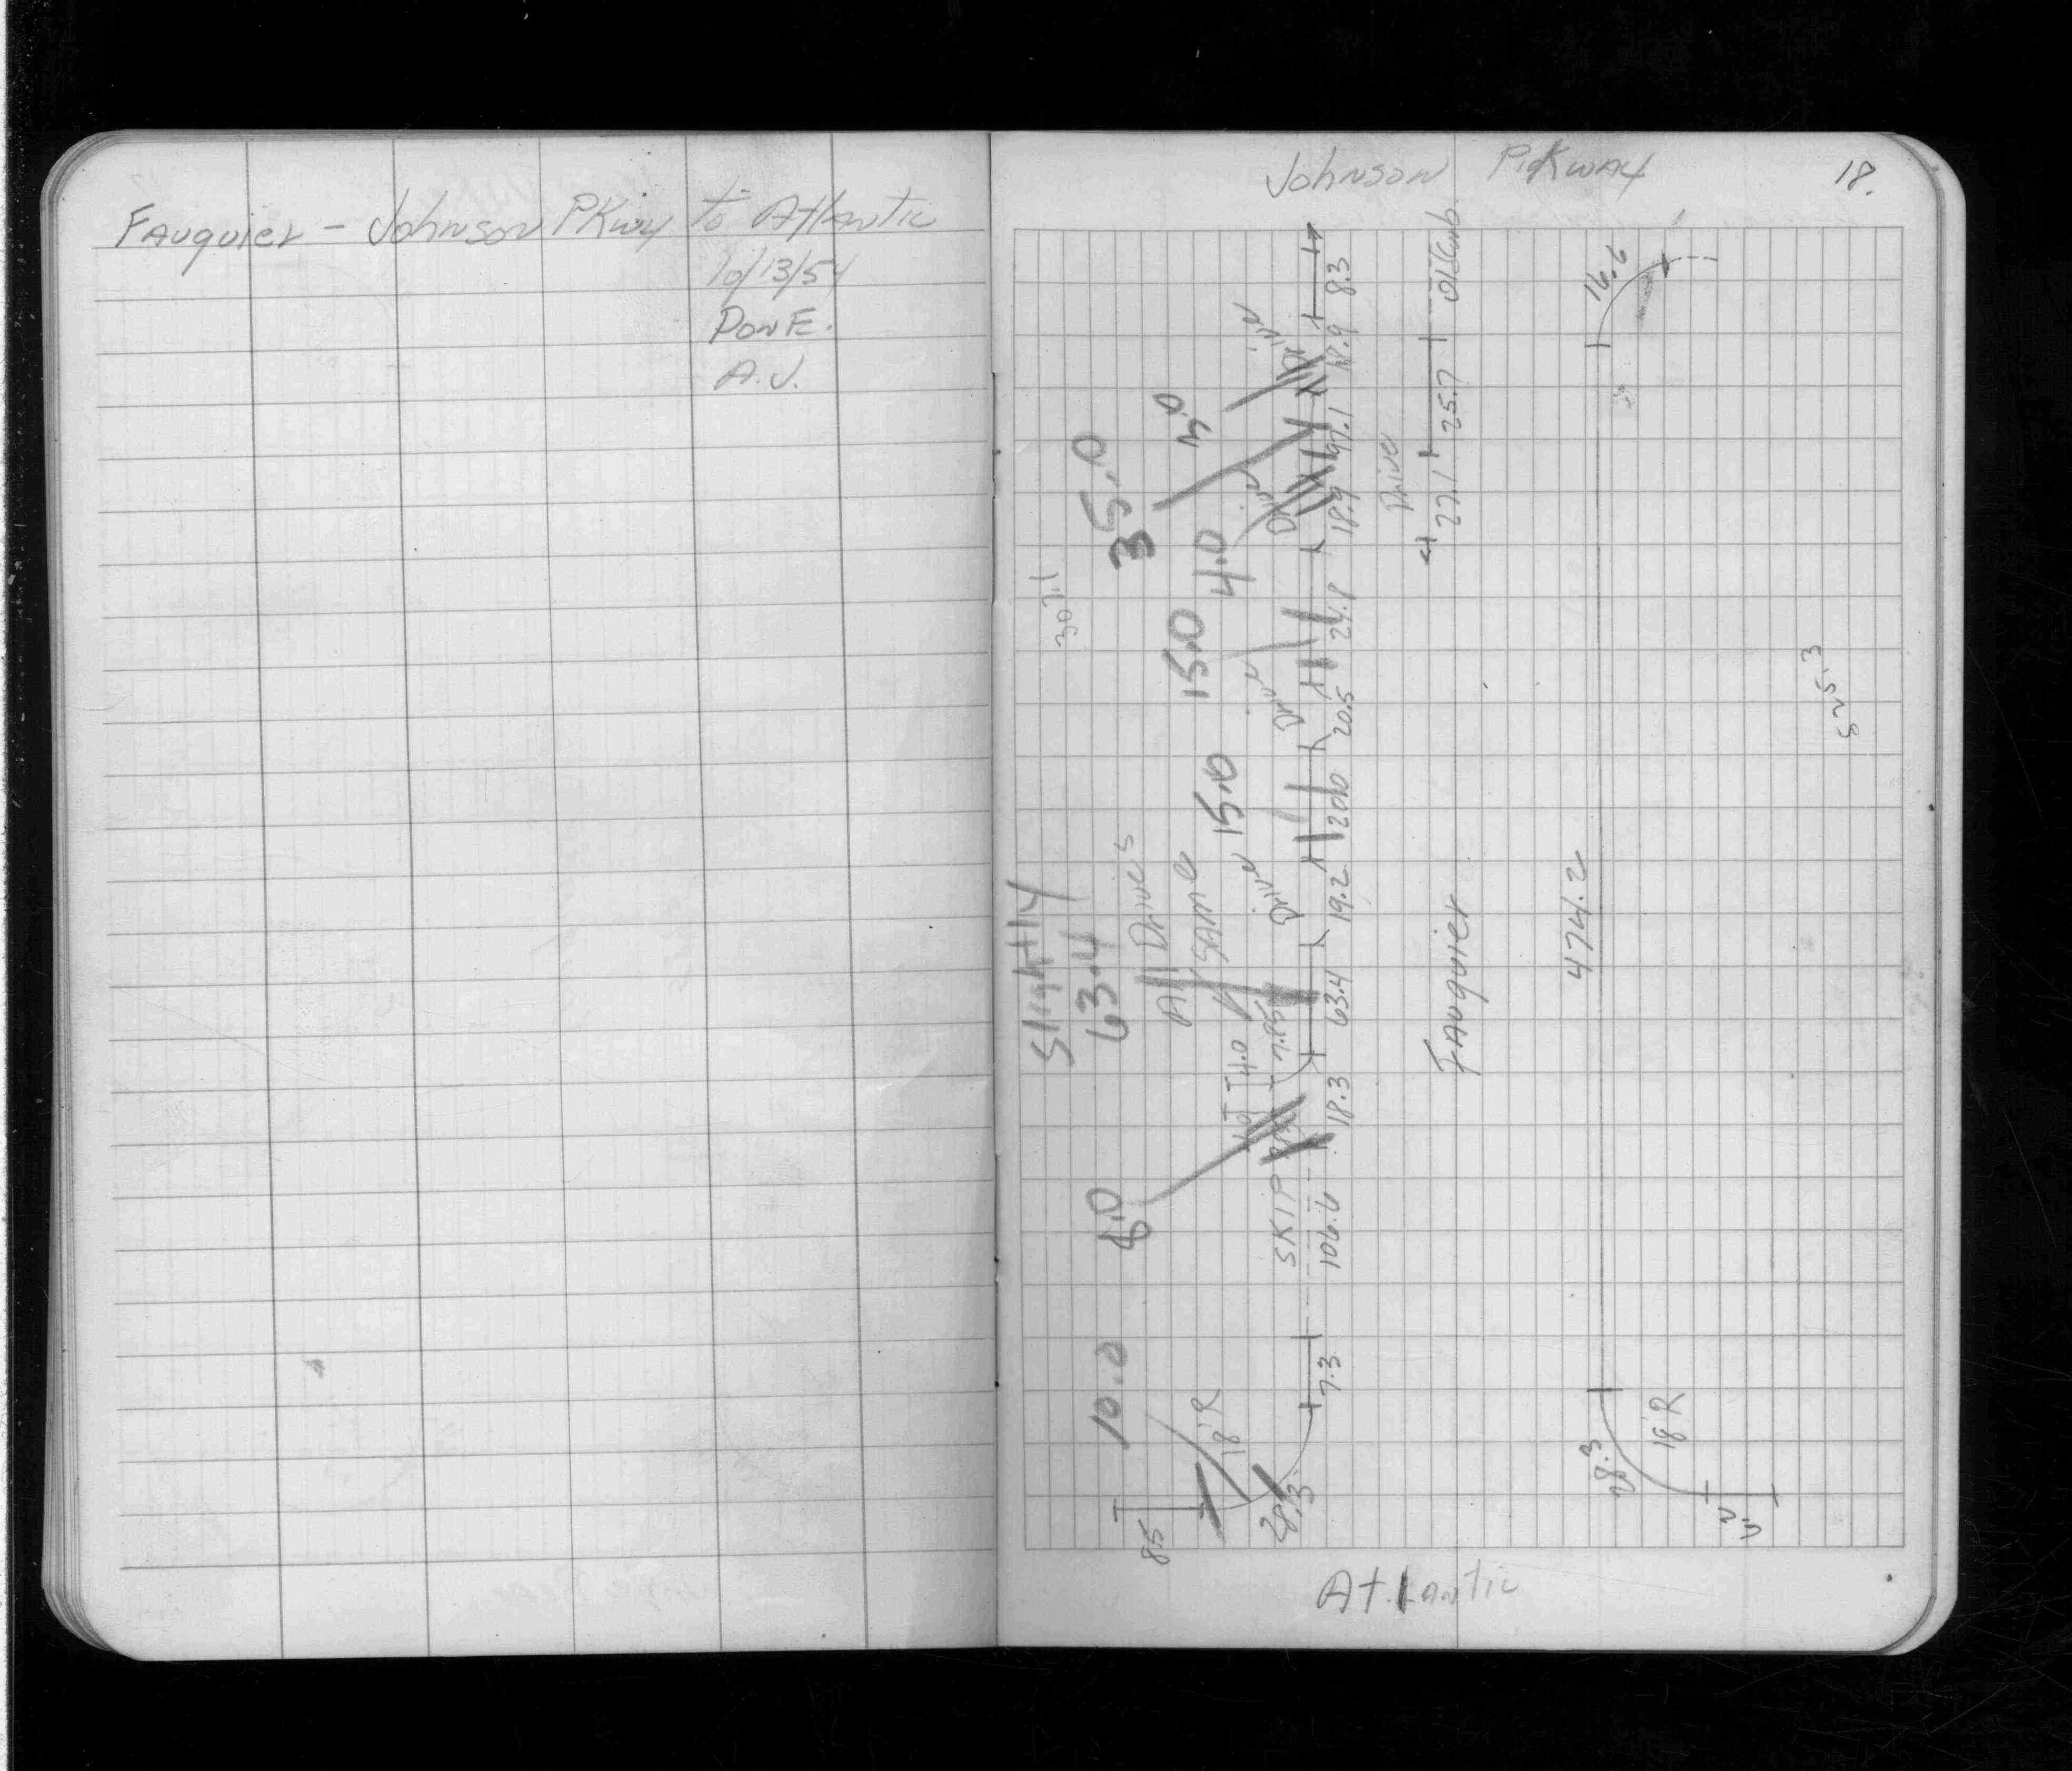 Fauquier - Johnson PKwy to Atlantic
10/13/54
Don E.
A.J.
Johnson PKway
18.
8.3
18.9
97.1
18.9
24.8
20.5
20.0
19.2
63.4
18.3
106.6
7.3
Drive
Drive
Drive
Drive
SKIP
3.0
35.0
4.0
15.0
15.0
307.1
Slightly
63.4
All Drives
SAME
4.0
8.0
10.0
18'R
28.3
8.5
Drive
27.1
25.7
Old Curb
Fauquier
474.2
16.6
525.3
28.3
18'R
Atlantic